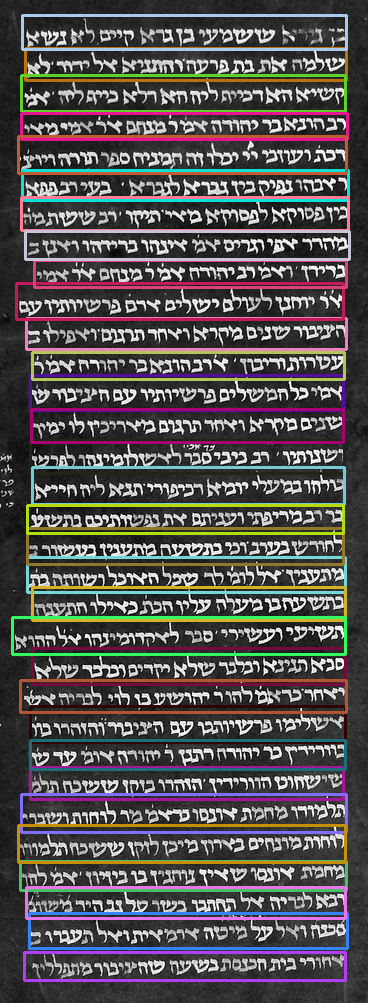 בן גורא ששמעי בן גרא קיים לא נשא
שלמה את בת פרעה והתניא אל יהוד לא
קשיא הא דכייף ליה הא דלא כייף ליה אמ
רב הונא בר יהודה אמ ר מנחם אר אמי מאי
דכת ועוזבי יי יכלו זה המניח ספר תורה ויוצ
ר אבהו נפיק בין גברא לגברא בעי רב פפא
בין פסוקא לפסוקא מאי תיקו רב ששת מה
מהדר אפי וגריס אמ אינהו בדידהו ואנן ב
בדידן ואמ רב יהודה אמ ר מנחם אר אמי
אל יוחנן לעולם ישלים אדם פרשיותיו עם
הציבור שנים מקרא ואחד תרגום ואפילו ב
עטרות ודיבון א רב הונא בר יהודה אמ ר
אמי כל המשלים פרשיותיו עם הציבור ש
שנים מקרא ואחד תרגום מאריכין לו ימיו
ושנותיו רב ביבי סבר לאשלמינהו לפרשי
כולהו במעלי יומא דכיפורי תנא ליה חייא
בר רב מדיפתי ועניתם את נפשותיכם בתשעה
לחודש בערב וכי בתשעה מתענין בעשור ב
מתענין אלא לומ לך שכל האוכל ושותה בת
בתשעה בו מעלה עליו הכת כאילו התענה
תשיעי ועשירי סבר לאקדומינהו אל ההוא
סבא תנינא ובלבד שלא יקדים ובלבד שלא
יאחר כדאמ להו ר יהושע בן לוי לבניה אש
אשלימו פרשיותכו עם הציבור והזהרו בו
בוורידין כר יהודה דתנן ר יהודה אומ עד ש
שישחוט הוורידין והזהרו בזקן ששכח תלמ
תלמודו מחמת אונסו דאמ מר לוחות ושברי
לוחות מונחים בארון מיכן לזקן ששכח תלמודו
מחמת אונסו שאין נוהגין בו בזיון אמ להו
רבא לבניה אל תחתכו בשר על גב היד משום
סכנה ואל על מיטה ארמאית ואל תעברו ב
אחורי בית הכנסת בשעה שהציבור מתפללין